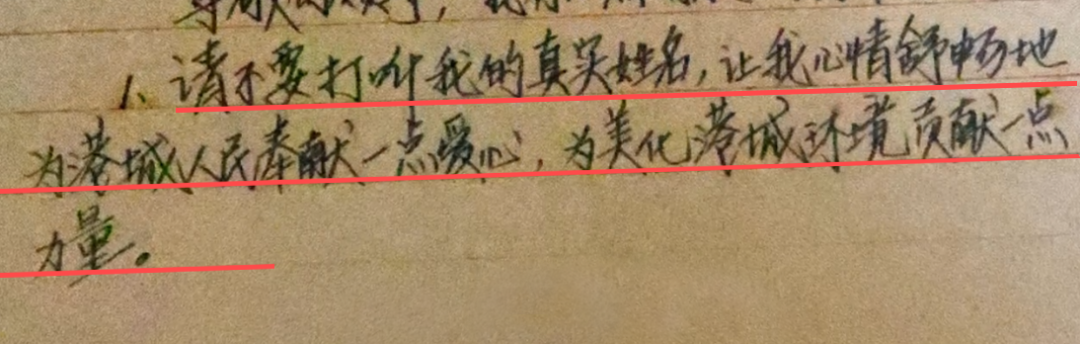 1、请不要打听我的真实姓名,让我心情舒畅地
为港城人民奉献一点爱心,为美化港城环境贡献一点
力量。